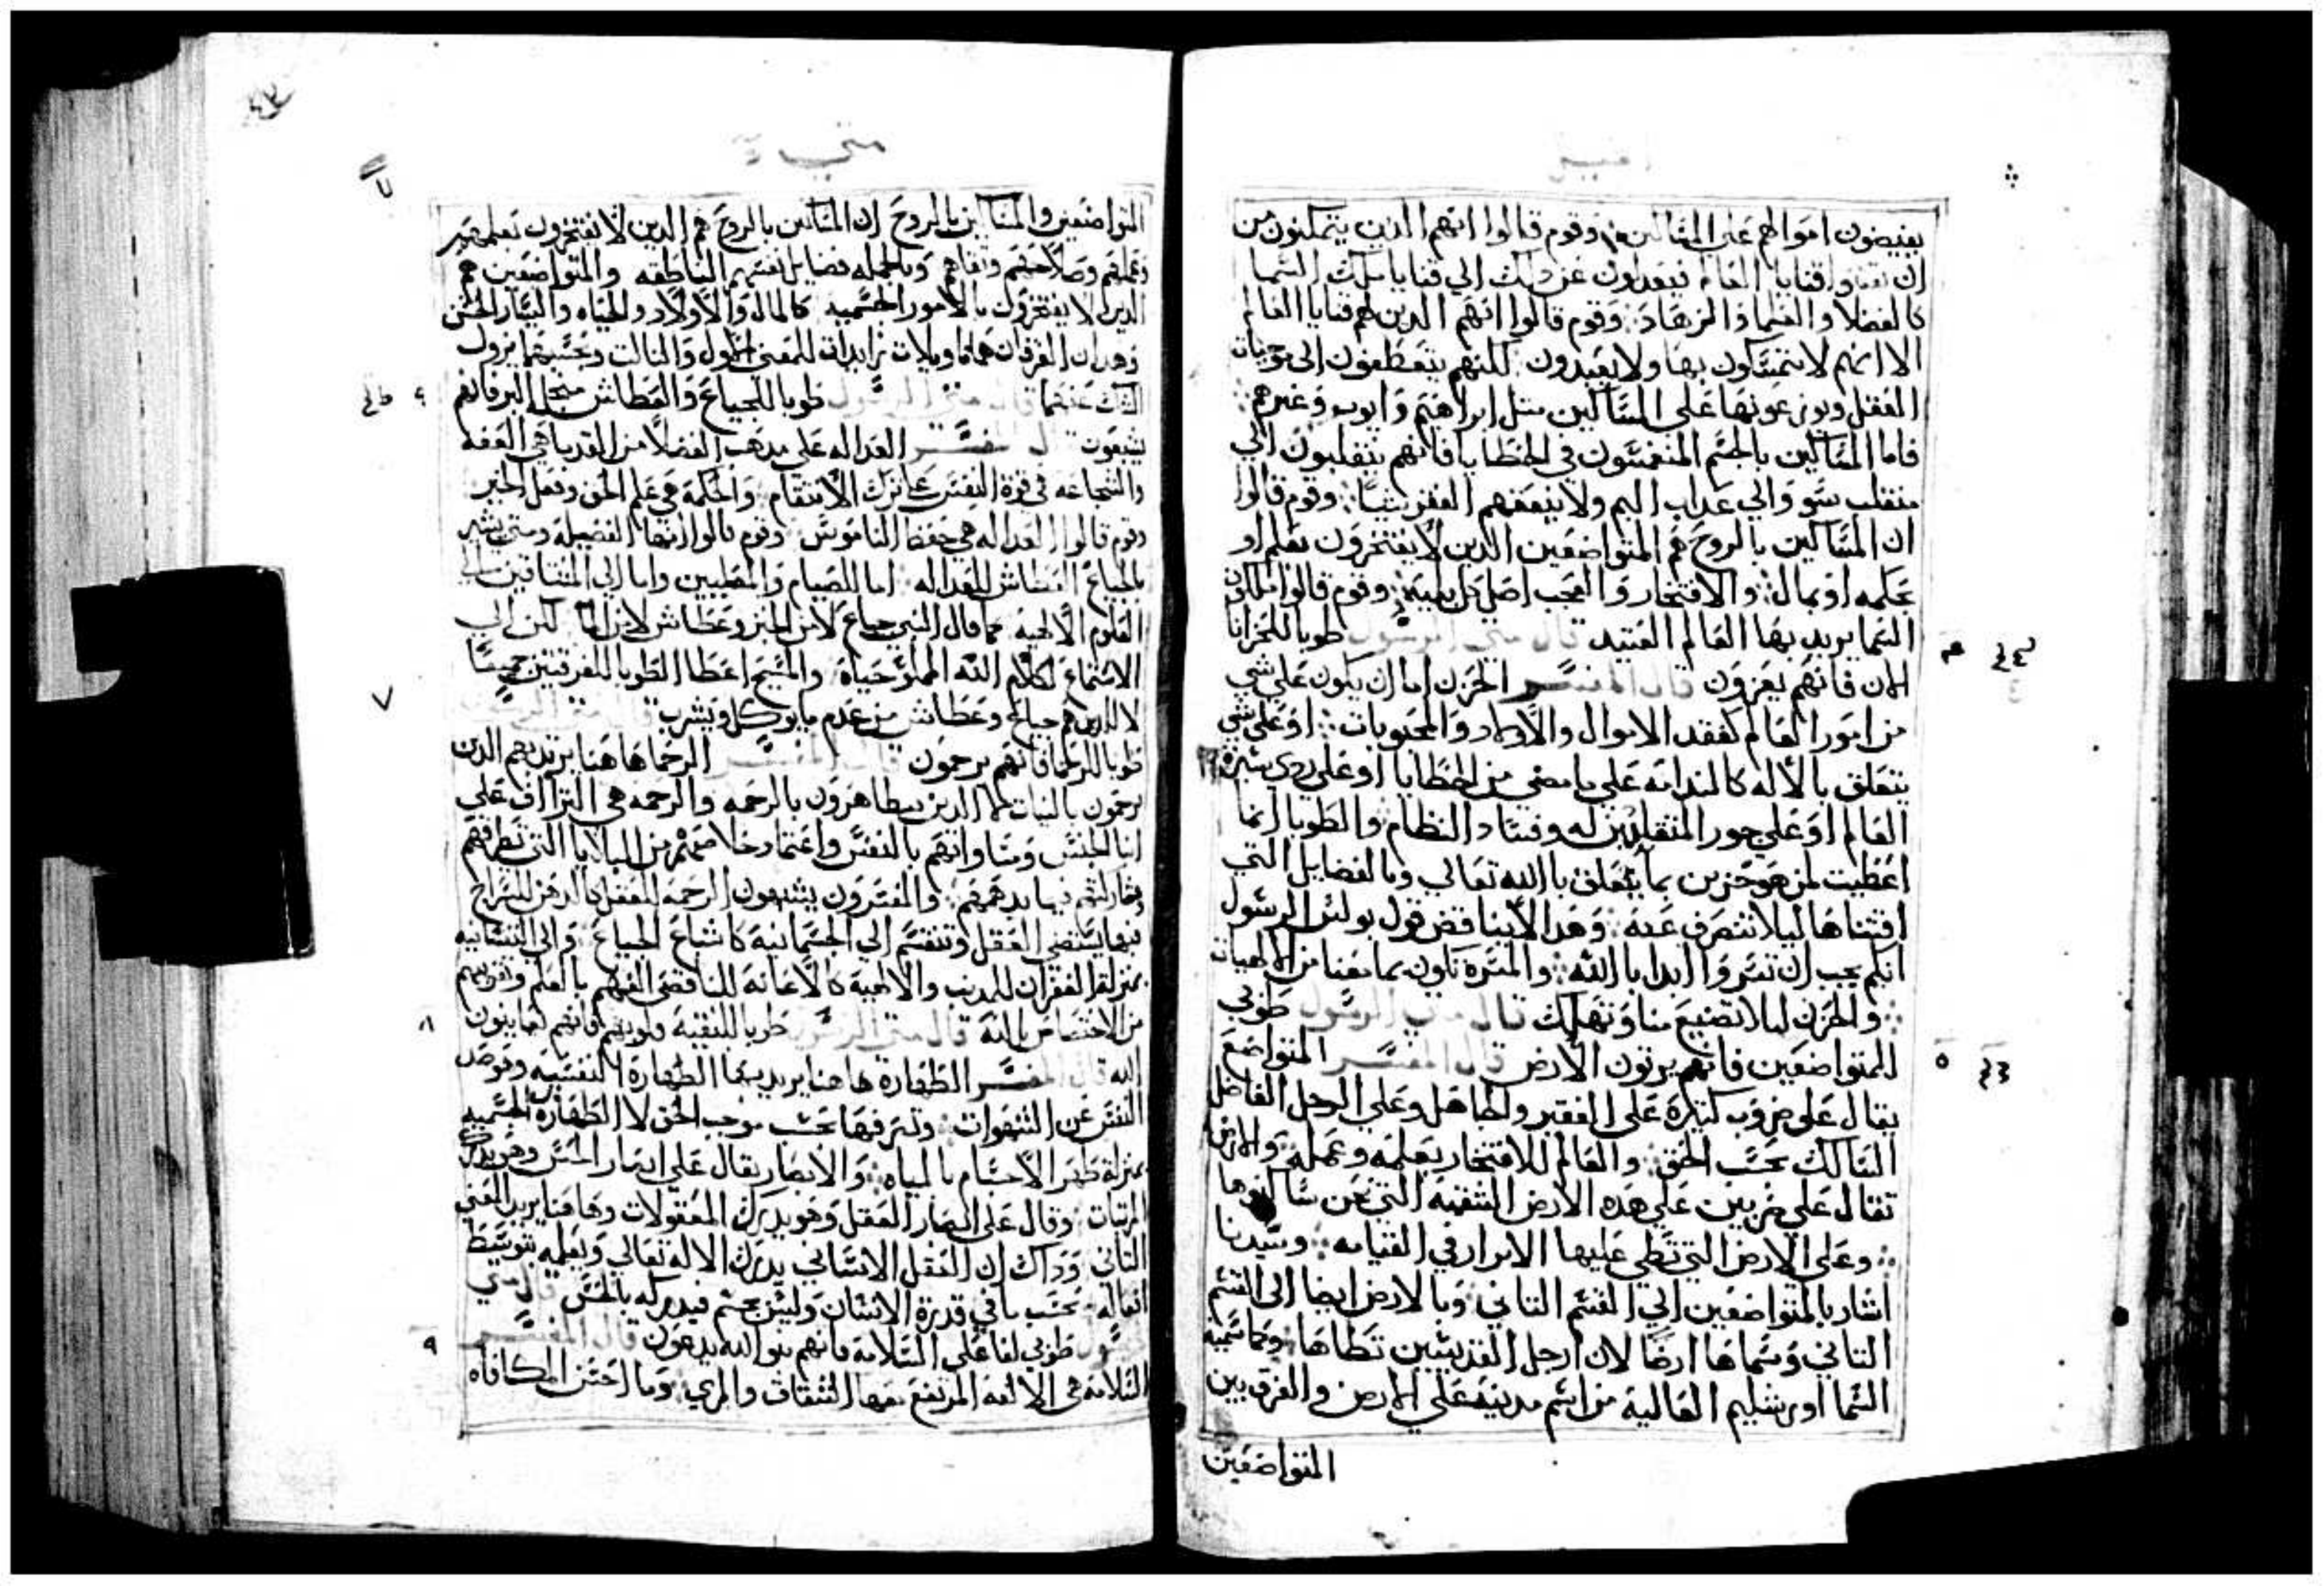 يفيضون اموالهم على المساكين وقوم قالوا انهم الذين يتمكنون من
ان يقتنوا قنايا العالم فيعدلون عن ذلك الي قنايا ملكت السما
كالفضلا والعلما والزهاد وقوم قالوا انهم الذين لهم قنايا العالم
الا انهم لا يتمسكون بها ولا يعبدون لكنهم يتعطفون الى موجبات
العقل ويوزعونها على المساكين متل ابراهيم وايوب وغيرهم
فاما المساكين بالجسم المنغمسون في الخطايا فانهم ينقلبون الي
منقلب سو والي عداب اليم ولا ينفعهم الفقر شيا وقوم قالوا
ان المساكين بالروح هم المتواضعين الدين لا يفتخرون بعلم او
بحكمه او بمال والافتخار والعجب اصل كل بليه وقوم قالوا ملكوت
السما يريد بها العالم العتيد قال متى الرسول طوبا للحزانا
الان فانهم يعزون قال المفسر الحزن اما ان يكون على شي
من امور العالم كفقد الاموال والاولاد والمحبوبات او على شي
يتعلق بالاله كالندامه على ما مضي من الخطايا او على ردي سيرة
العالم او على جور المتقلدين له وفساد النظام والطوبا انما
اعطيت لمن هو حزين بما يتعلق بالله تعالي وبالفضايل التي
اقتناها ليلا تنصرف عنه وهدا لا يناقض قول بولس الرسول
انكم يجب ان تسروا ابدا بالله والمسرة تكون بما معنا من الالهيات
والحزن ليلا تضيع منا ونهلك قال متى الرسول طوبي
للمتواضعين فانهم يرتون الارض قال المفسر المتواضع
يقال على ضروب كتيرة على الفقير والجاهل وعلى الرجل الفاضل
السالك بحسب الحق والعالم للافتخار بعلمه وعمله والارض
تقال على ضربين على هده الارض الشقيه التي نحن ساكنوها
وعلى الارض التي تطي عليها الابرار في القيامه وسيدنا
اشار بالمتواضعين الي القسم التاني وبالارض ايضا الى القسم
التاني وسماها ارضا لان ارجل القديسين تطاها وكما سميه
السما اورشليم العالية من اسم مدينة على الارض والفرق بين
المتواضعين
متي
المتواضعين والمساكين بالروح ان المساكين بالروح هم الدين لا يفتخرون بعلمهم
وعملهم وصلاحهم وتقاهم وبالجمله فضايل نفسهم الناطقه والمتواضعين هم
الدين لا يفتخرون بالامور الجسميه كالمال والاولاد والحياه واليسار الحسن
وهدان الفرقان هما تاويلات زايدات للمعنى الاول والتالت وبحسبهما يزول
الشك عنهما قال متى الرسول طوبا للجياع والعطاش منجل البر فانهم
يشبعون قال المفسر العداله على مدهب الفضلا من القدما هي العفه
والشجاعه في قوة النفس على ترك الانتقام والحكمة هي علم الحق وفعل الخير
وقوم قالوا العداله هي حفظ الناموس وقوم قالوا انها الفضيلة ومتي يشير
بالجياع العطاش للعداله اما للصيام والمصليين واما الي المشتاقين الى
العلوم الالهيه كما قال النبي جياع لا من الخبز وعطاش لا من الما لكن الي
الاستماع لكلام الله المملو حياة والمسيح اعطا الطوبا للفرقتين جميعا
لا للدين هم جياع وعطاش من عدم ما يوكل ويشرب قال متى الرسول
طوبا للرحما فانهم يرحمون قال المفسر الرحما هاهنا يريد بهم الدين
يرحمون بالنيات لا الدين يتظاهرون بالرحمه والرحمه هي التراف على
ابنا الجنس ومساواتهم بالنفس واغتمار خلاصهم من البلايا التي تطرقهم
ومشاركتهم فيما يدهمهم والمفسرون يشبهون الرحمة للعقل كالدهن للسراج
فبها يستضي العقل وتنقسم الي الجسمانيه كاشباع الجياع والى النفسانيه
بمنزلة الغفران للمدنب والالهية كالاعانة للناقصي الفهم بالعلم وتقريبهم
من الاختصاص بالله قال متى الرسول طوبا للنقية قلوبهم فانهم يعاينون
الله قال المفسر الطهارة هاهنا يريد بها الطهارة النفسيه وهو صد
النفس عن الشهوات وتصرفها بحسب موجب الحق لا الطهارة الجسميه
بمنزلة طهر الاجسام بالمياه والابصار يقال على ابصار الحس وهو يدرك
المرئيات ويقال على ابصار العقل وهو يدرك المعقولات وهاهنا يريد المعني
التاني وداك ان العقل الانساني يدرك الاله تعالي ويعلمه بتوسط
افعاله بحسب ما في قدرة الانسان وليس بجسم فيدركه بالحس قال متى
الرسول طوبي لفاعلي السلامة فانهم بنو الله يدعون قال المفسر
السلامة هي الالفه المرتفع معها الشقاق والمري وما احسن المكافاه